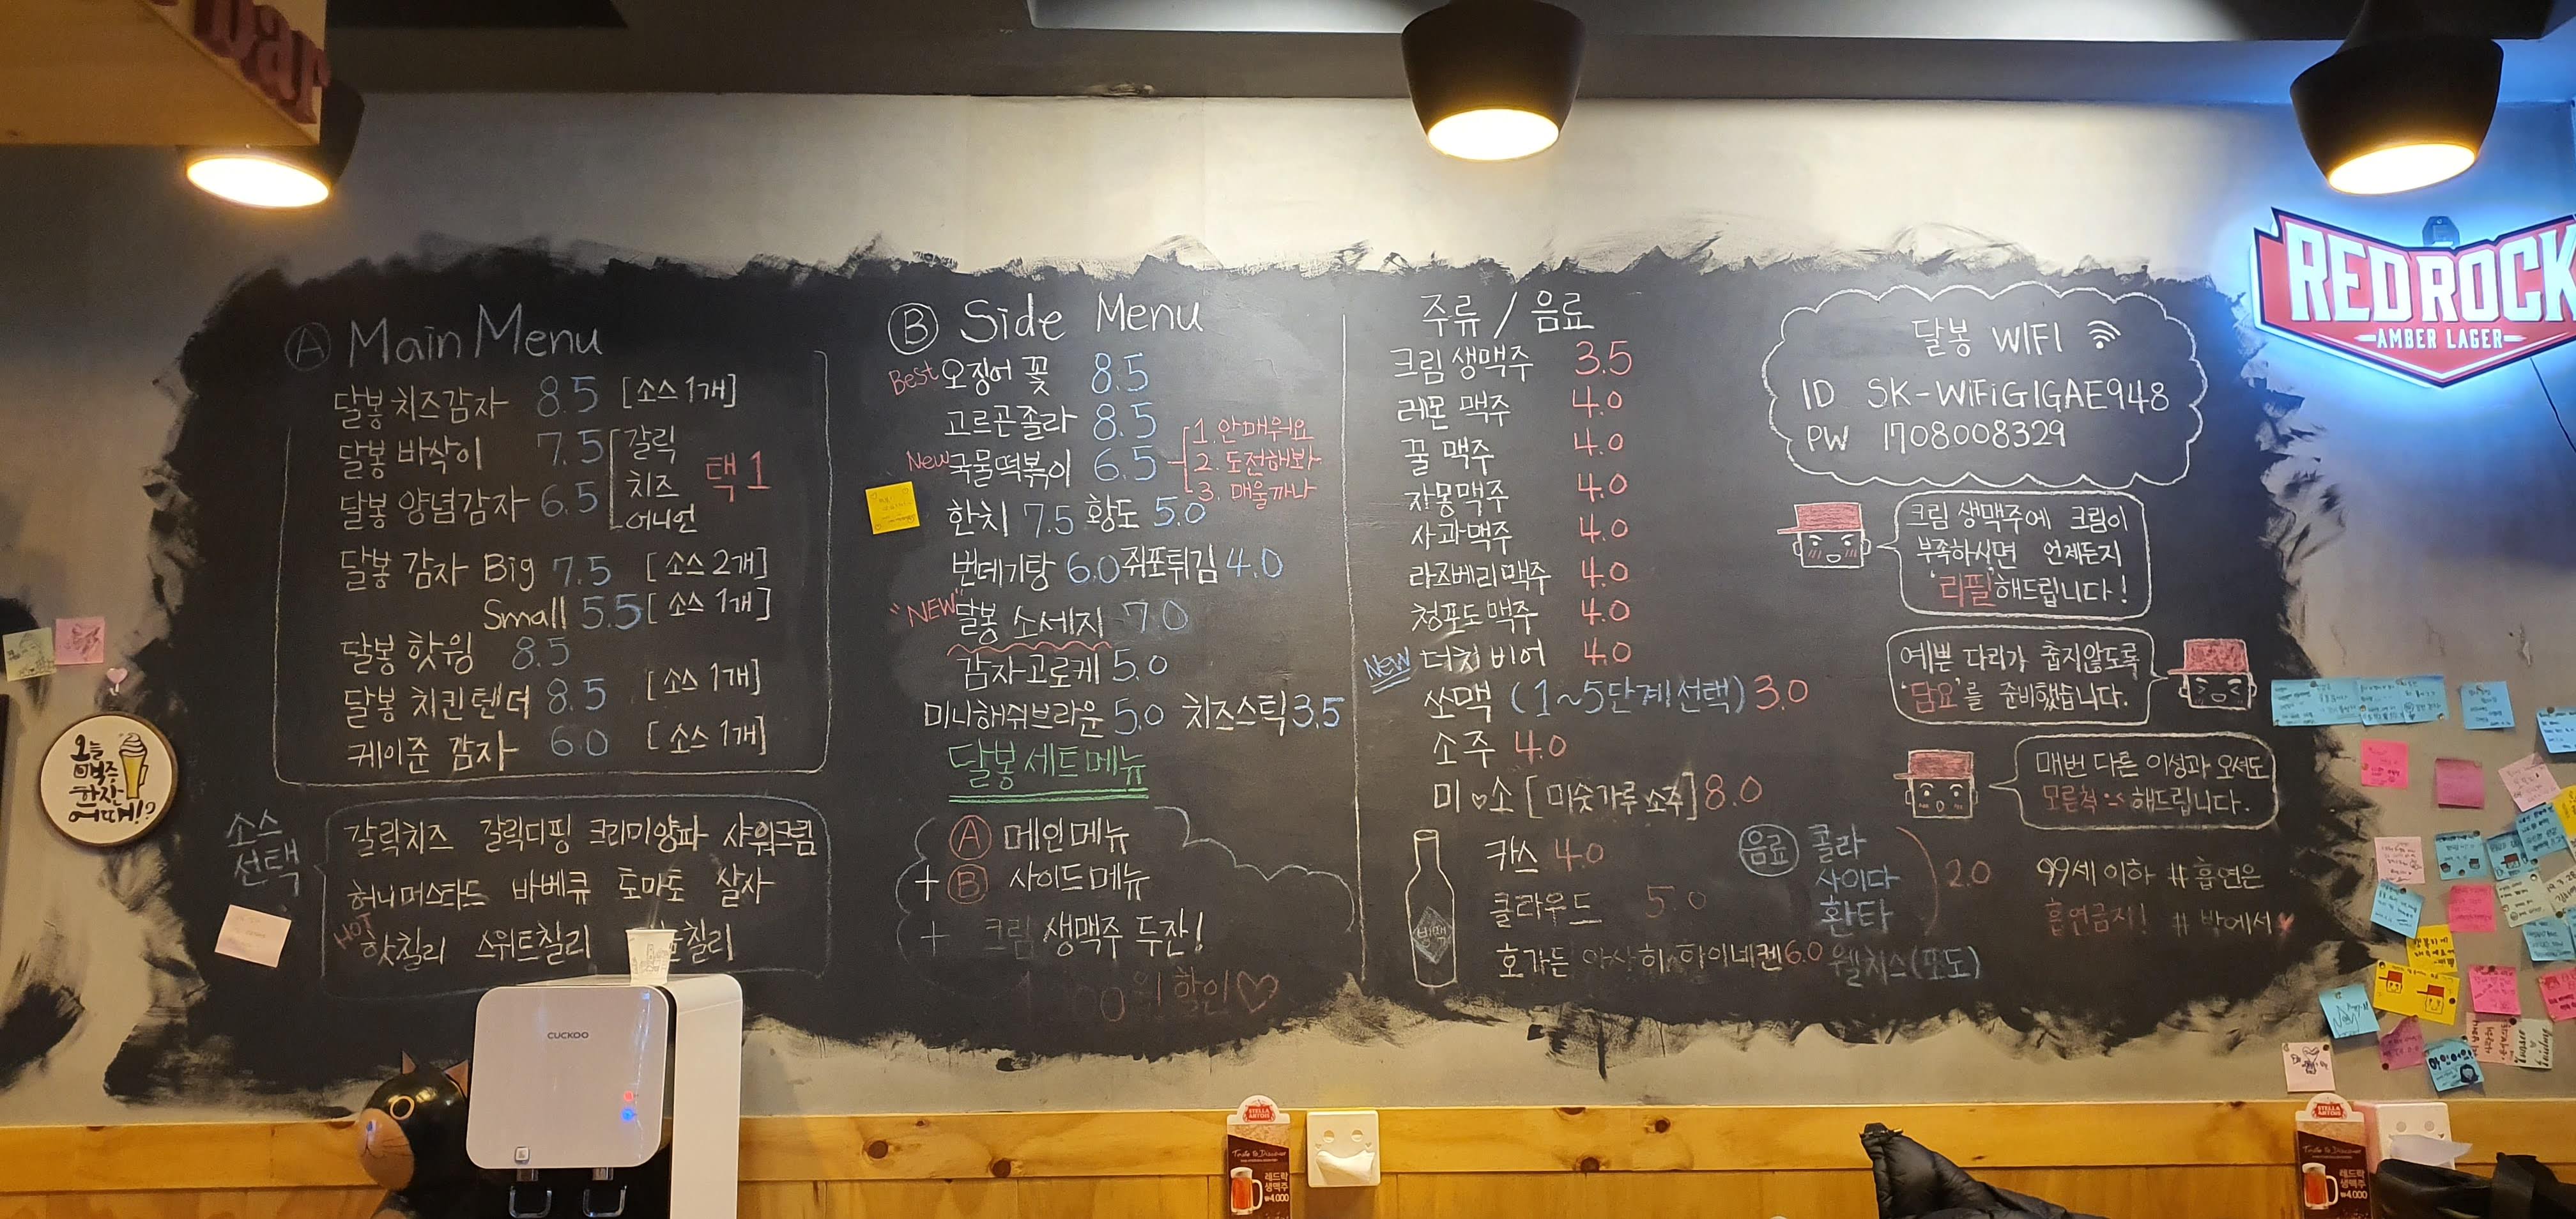 bar
Ⓐ Main Menu
달봉 치즈감자 8.5 [소스 1개]
달봉 바삭이 7.5
달봉 양념감자 6.5
갈릭
치즈
어니언
택 1
달봉 감자 Big 7.5 [소스 2개]
Small 5.5 [소스 1개]
달봉 핫윙 8.5
달봉 치킨텐더 8.5 [소스 1개]
케이준 감자 6.0 [소스 1개]
소스
선택
갈릭치즈 갈릭디핑 크리미양파 샤워크림
허니머스타드 바베큐 토마토 살사
HOT
핫칠리 스위트칠리 칠리
Ⓑ Side Menu
Best 오징어 꽃 8.5
고르곤졸라 8.5
New 국물떡볶이 6.5
1. 안매워요
2. 도전해봐
3. 매울까나
한치 7.5 황도 5.0
번데기탕 6.0 쥐포튀김 4.0
"NEW" 달봉 소세지 7.0
감자고로케 5.0
미니해쉬브라운 5.0 치즈스틱 3.5
달봉세트메뉴
Ⓐ 메인메뉴
+ Ⓑ 사이드메뉴
+ 크림 생맥주 두잔!
원 할인♡
주류 / 음료
크림 생맥주 3.5
레몬 맥주 4.0
꿀 맥주 4.0
자몽맥주 4.0
사과맥주 4.0
라즈베리맥주 4.0
청포도맥주 4.0
NEW 더치 비어 4.0
쏘맥 (1~5단계선택) 3.0
소주 4.0
미♡소 [미숫가루 소주] 8.0
병맥
카스 4.0
클라우드 5.0
호가든 아사히 하이네켄 6.0
음료
콜라
사이다
환타
2.0
웰치스(포도)
달봉 WIFI
ID SK-WiFiGIGAE948
PW 1708008329
크림 생맥주에 크림이
부족하시면 언제든지
'리필'해드립니다!
예쁜 다리가 춥지않도록
'담요'를 준비했습니다.
매번 다른 이성과 오셔도
모른척 해드립니다.
99세 이하 #흡연은
흡연금지! #밖에서♥
REDROCK
AMBER LAGER
오늘
맥주
한잔
어때!?
CUCKOO
STELLA ARTOIS
레드락
생맥주
₩4,000
STELLA ARTOIS
레드락
생맥주
₩4,000